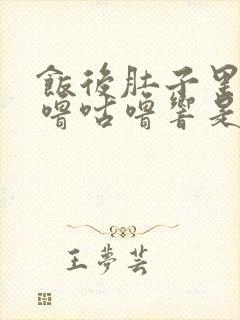 飯後肚子里
嚕咕嚕響是
王夢芸